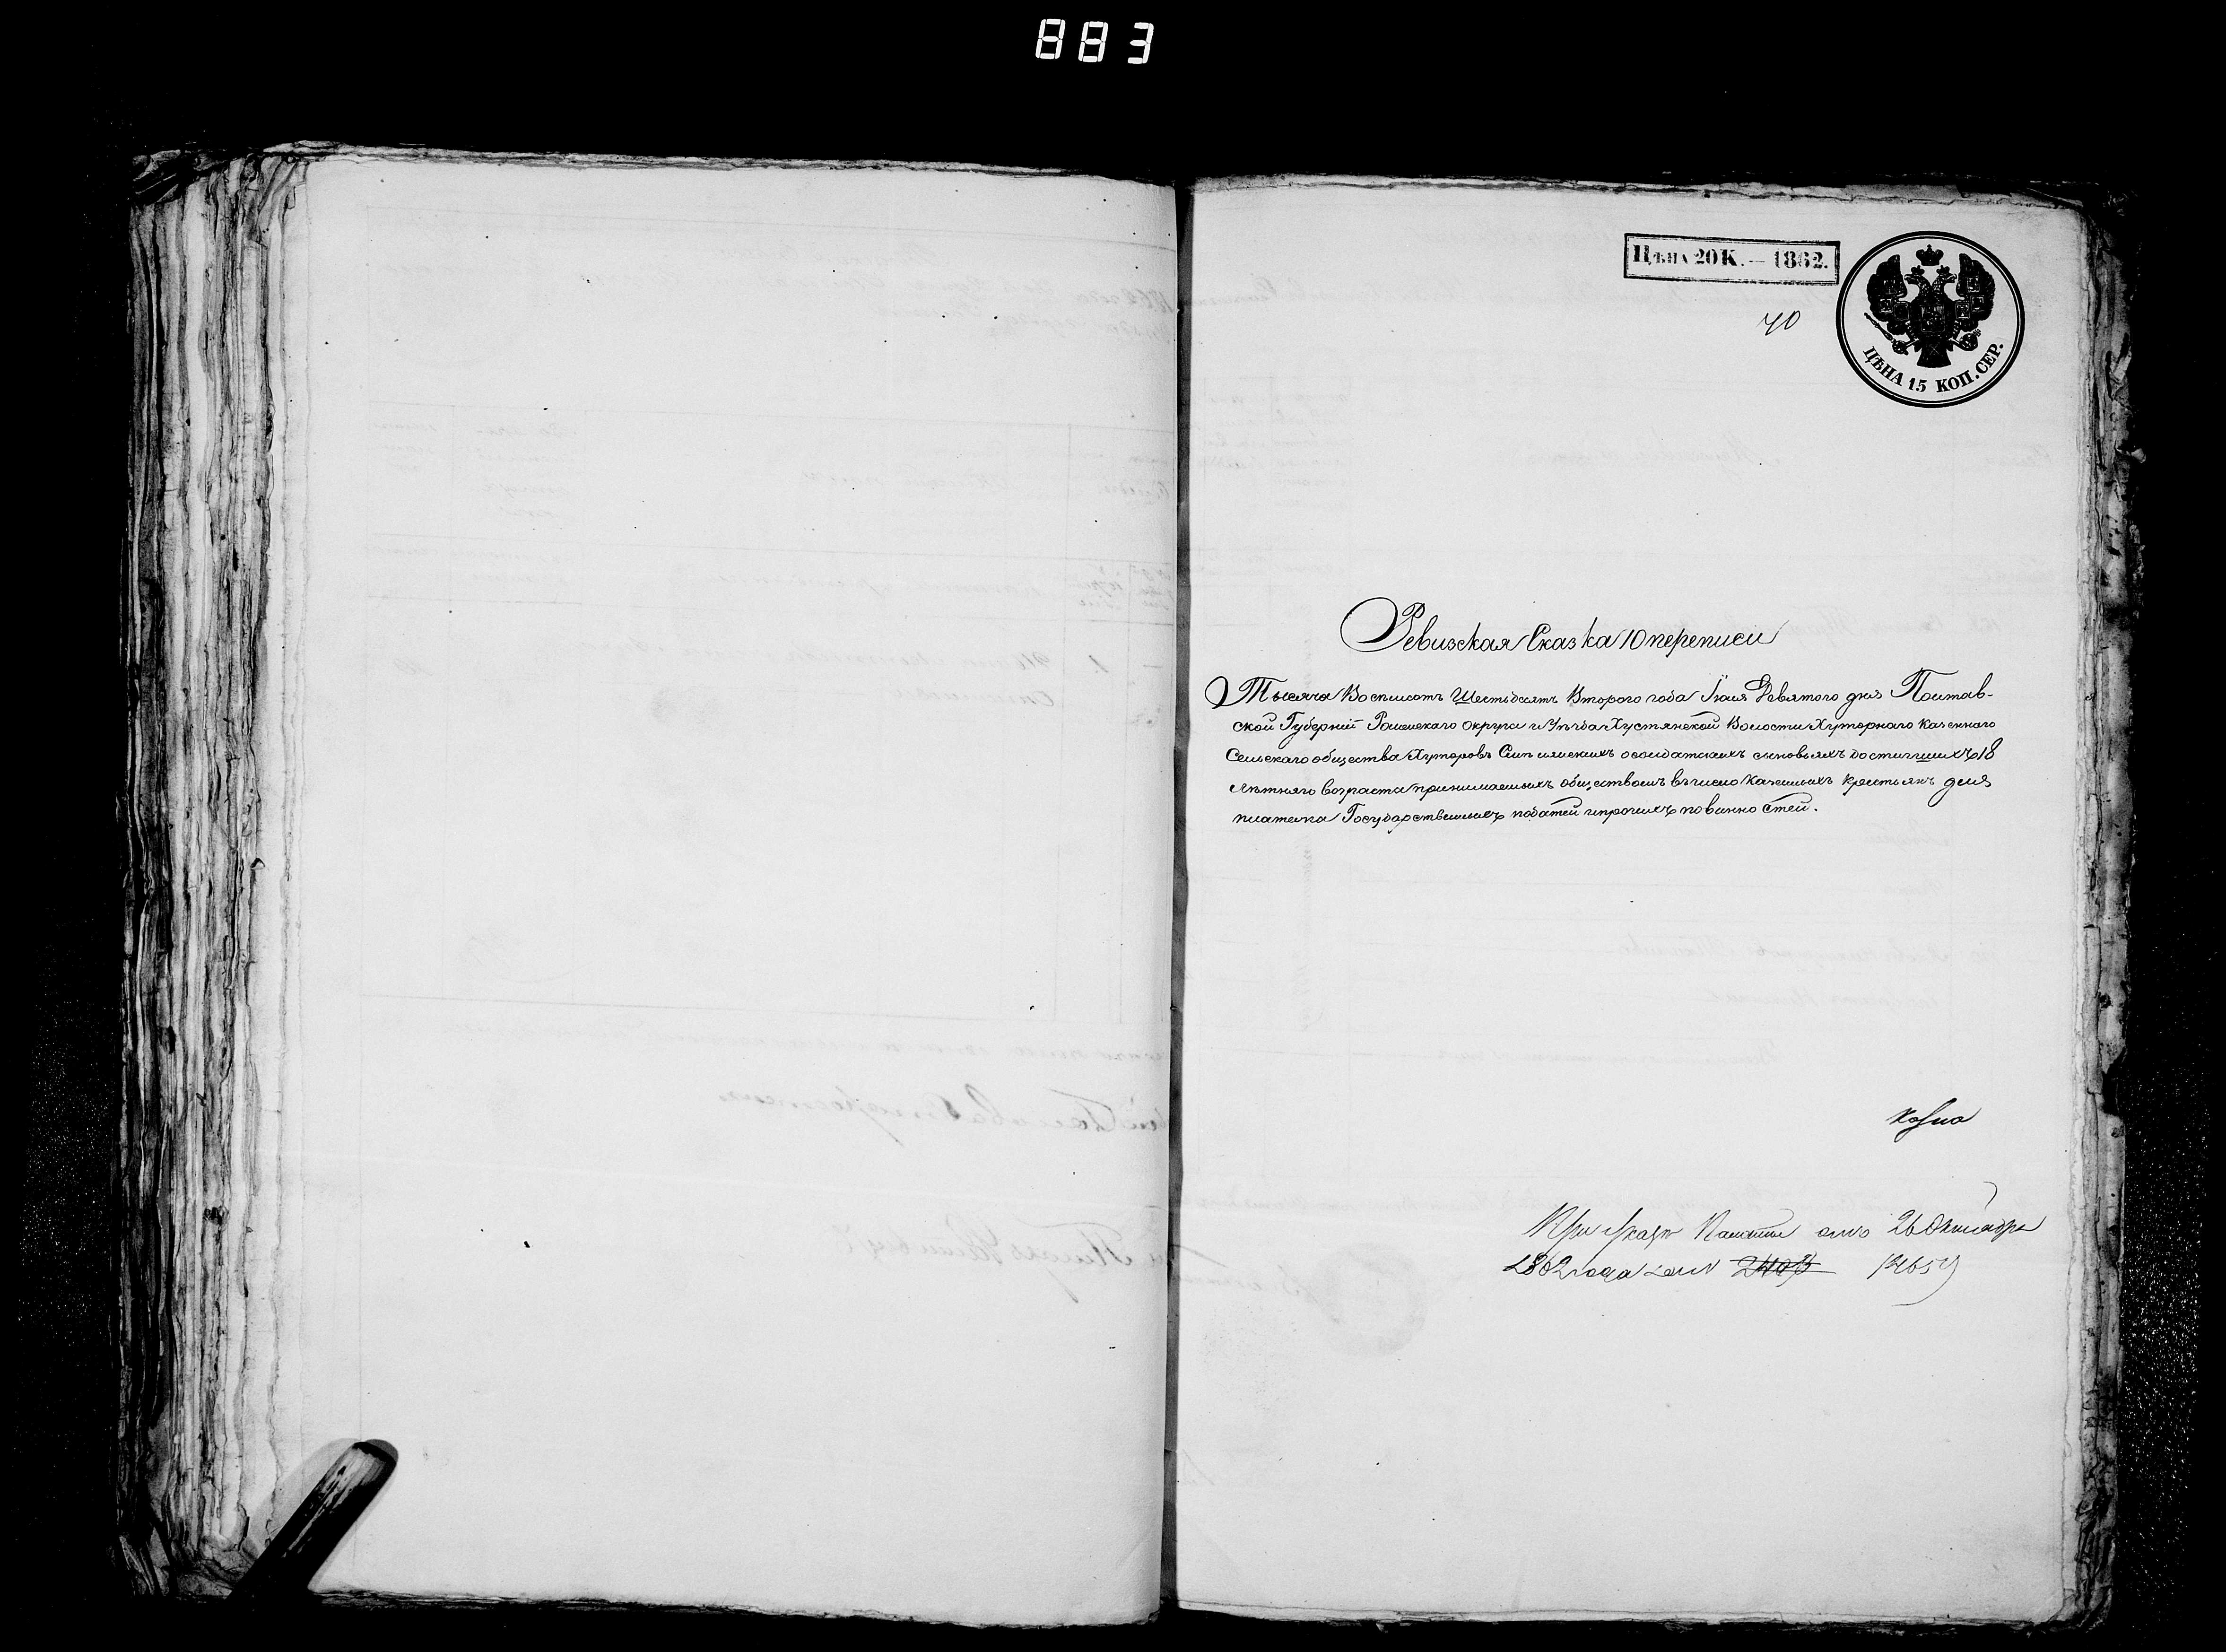 883
Цѣна 20 К. — 1862.
40
ЦѢНА 15 КОП. СЕР.
Ревизская Сказка 10 переписи
Тысяча Восемсотъ Шестьдесятъ Второго года Іюля Девятого дня Полтав-
ской Губерніи Роменскаго Округа и Уѣзда Хустянской Волости Хуторнаго Казеннаго
Сельскаго общества Хуторовъ о солдатскихъ сыновьяхъ достигшихъ 18
лѣтняго возраста принимаемыхъ обществомъ въ число Казенныхъ крестьянъ для
платежа Государственныхъ податей и прочихъ повинностей.
При указѣ Палаты отъ 26 Октября
1862 года за №